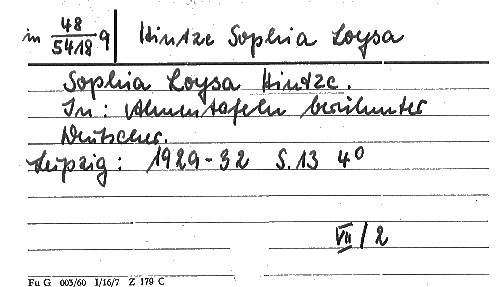 in 48/5418 9 Hintze Sophia Loysa
Sophia Loysa Hintze.
In: Ahnentafeln berühmter
Deutscher.
Leipzig: 1929-32 S. 13 4°
VII/2
Fu G 005/60 I/16/7 Z 179 C